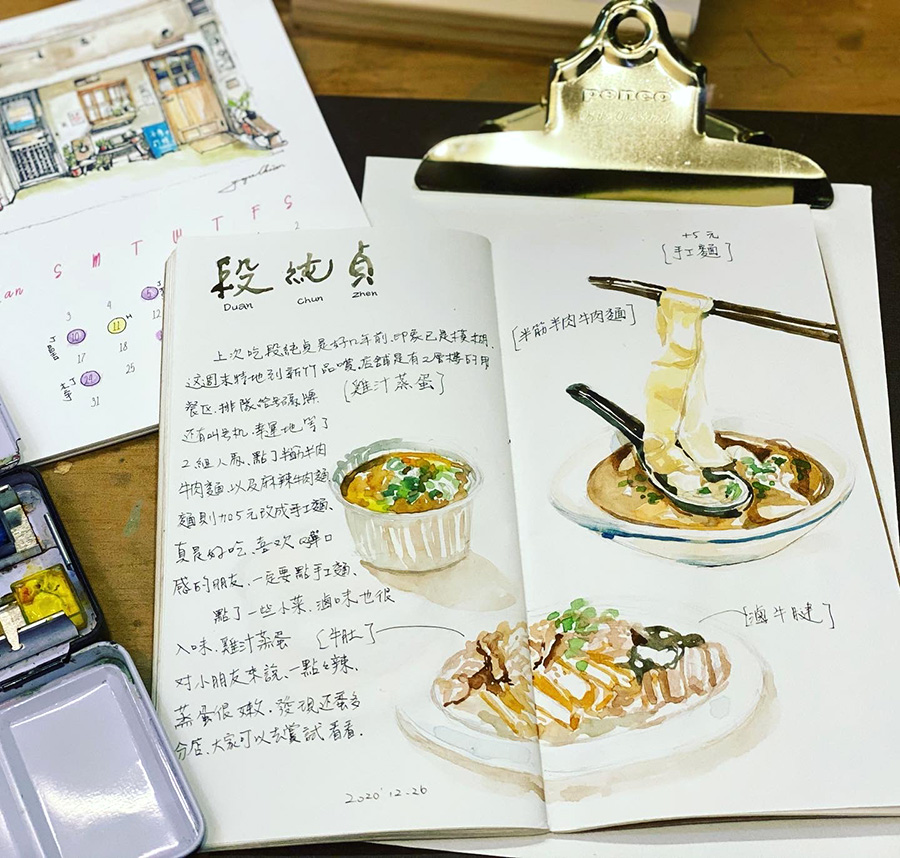 S M T W T F S
3 4
10 11 12
17 18
24 25
31
段純貞
Duan Chun Zhen
上次吃段純貞是好幾年前,印象已是模糊.
這週末特地到新竹品嚐.店舖是有2層樓的用
餐區.排隊
還有叫號机.幸運地等了
2組人馬.點了半筋半肉
牛肉麵.以及麻辣牛肉麵
麵則加5元改成手工麵.
真是好吃.喜欢Q彈口
感的朋友.一定要點手工麵.
點了一些小菜.滷味也很
入味.雞汁蒸蛋
對小朋友來說.一點點辣.
蒸蛋很嫩.發現还蠻多
分店.大家可以去嘗試看看.
2020'12-26
[雞汁蒸蛋]
[牛肚]
+5元
[手工麵]
[半筋半肉牛肉麵]
[滷牛腱]
penco